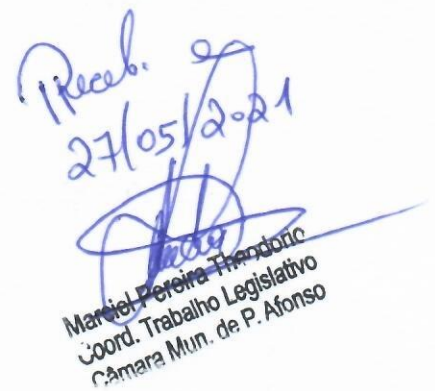 Receb. e
27/05/2021
Marciel Pereira Theodorio
Coord. Trabalho Legislativo
Câmara Mun. de P. Afonso